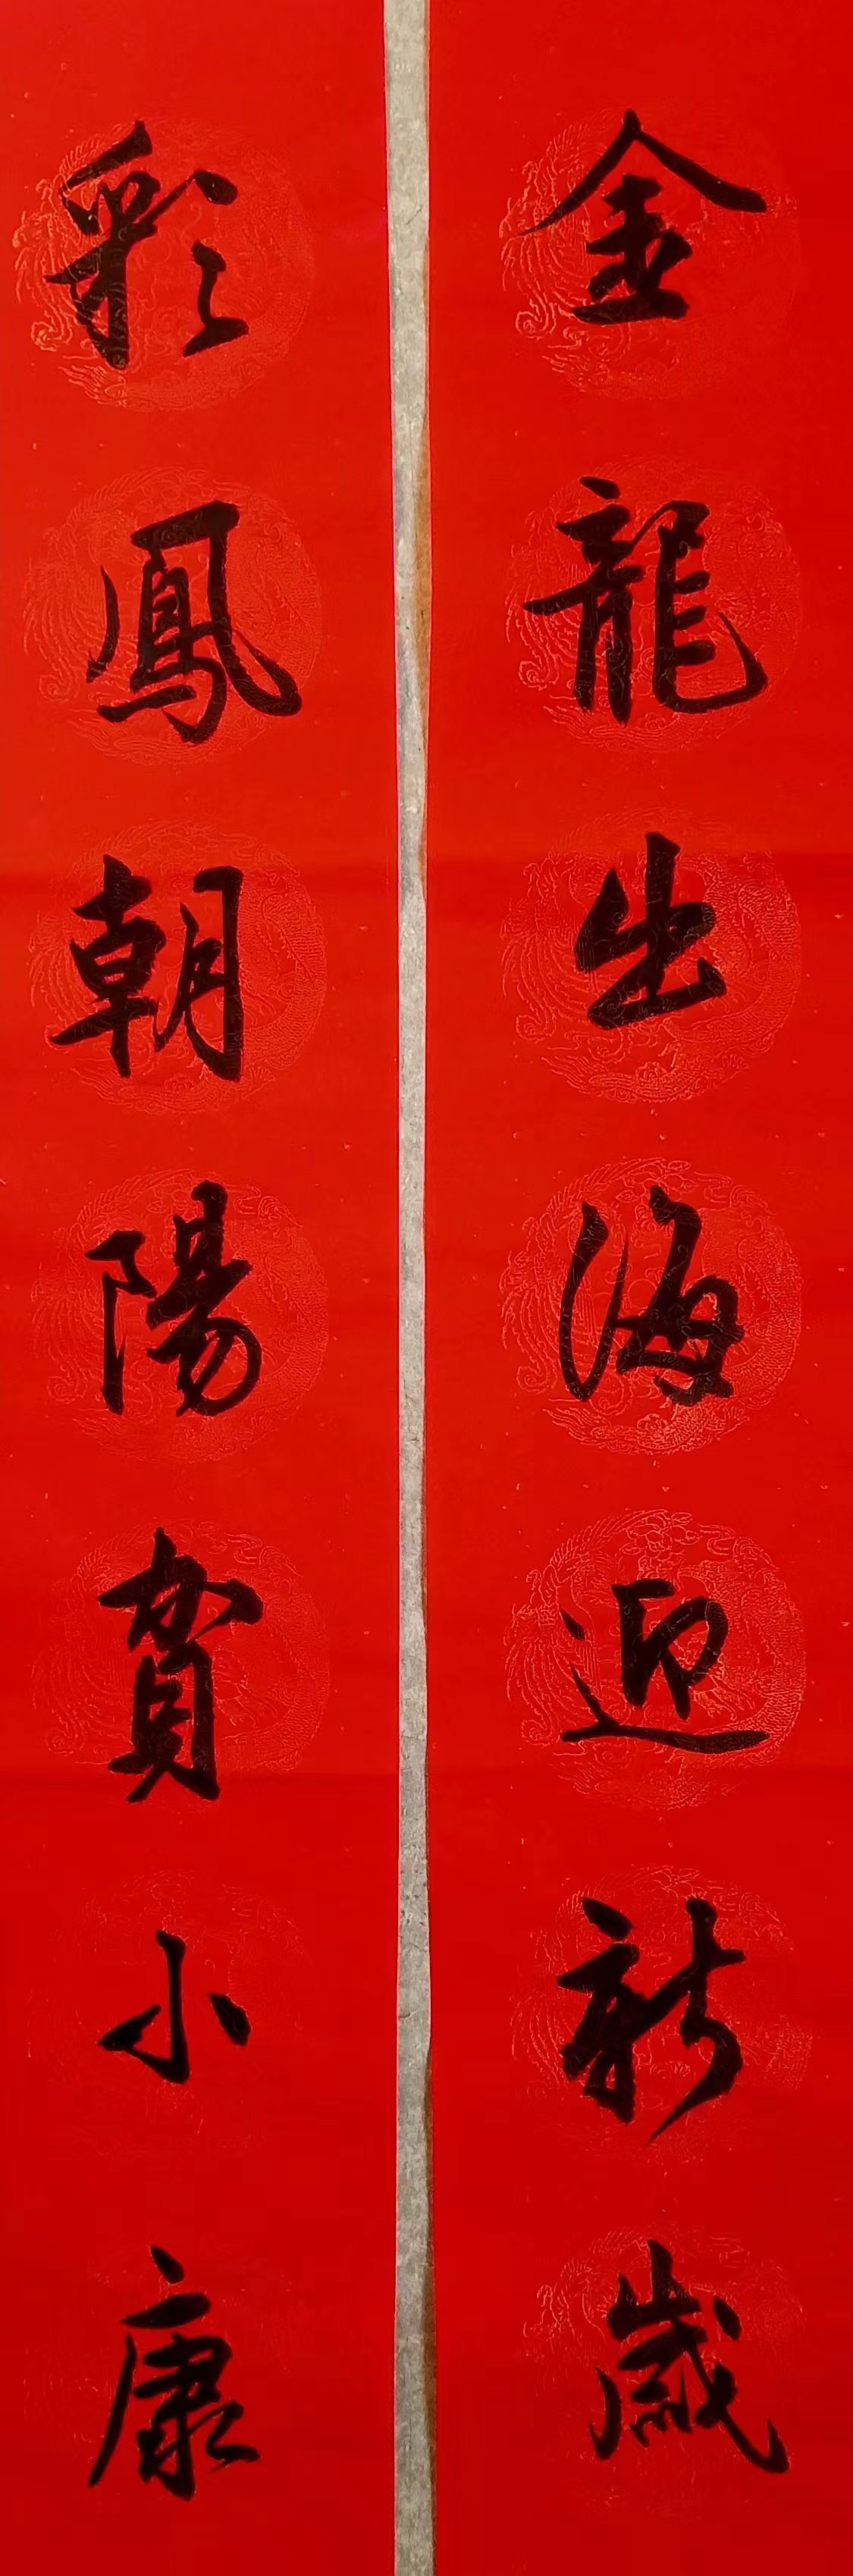 金龍出海迎新歲
彩鳳朝陽賀小康